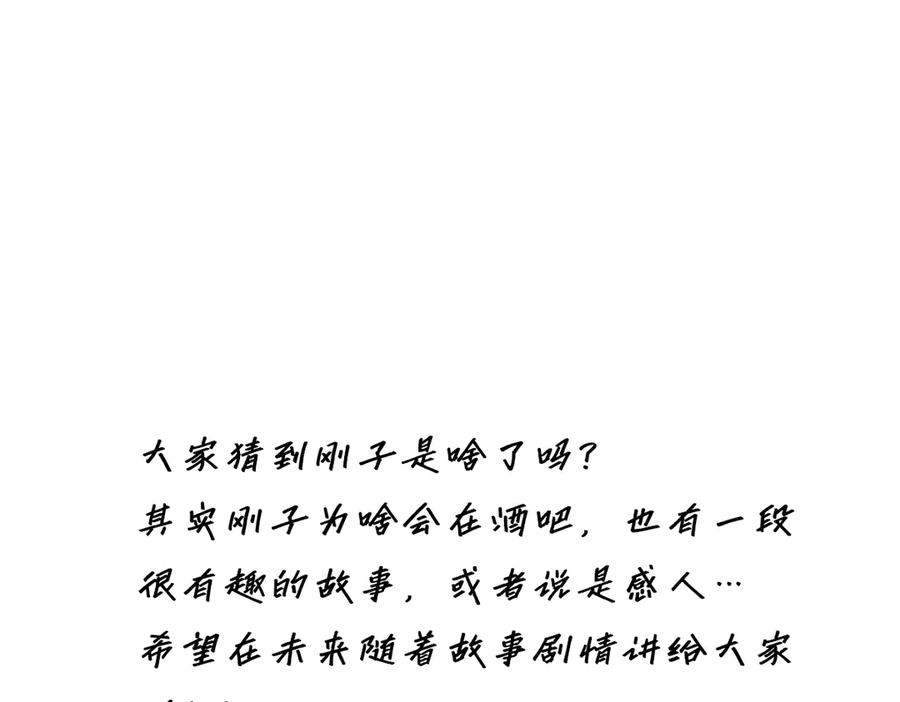 大家猜到刚子是啥了吗？
其实刚子为啥会在酒吧，也有一段
很有趣的故事，或者说是感人…
希望在未来随着故事剧情讲给大家